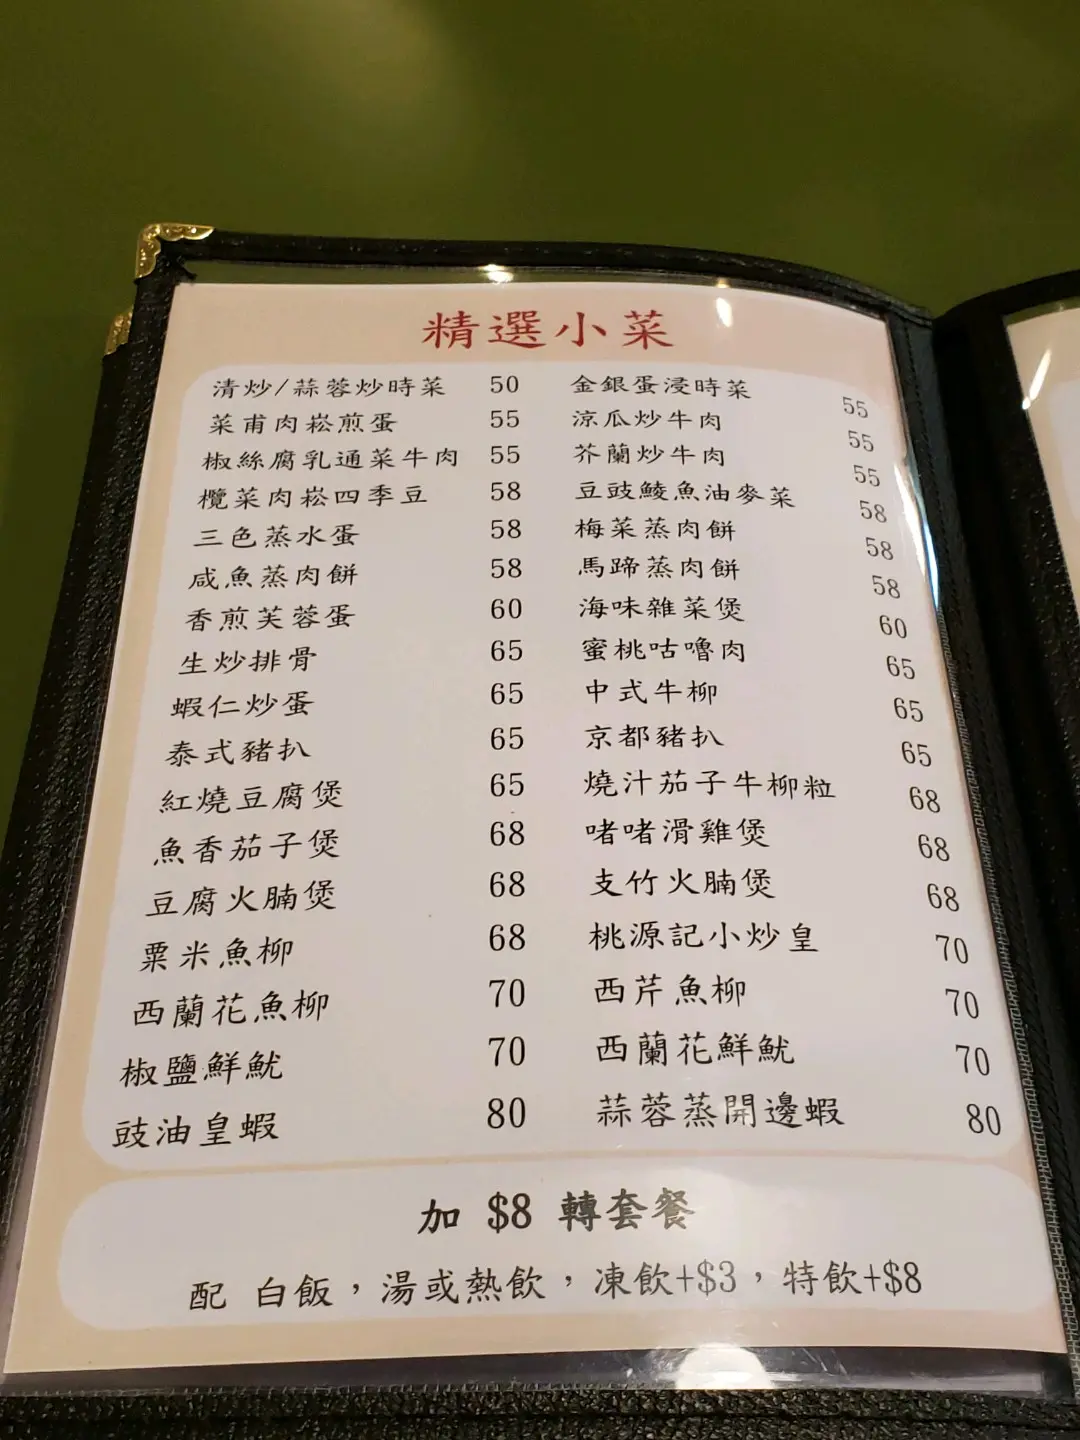 精選小菜
清炒/蒜蓉炒時菜 50 金銀蛋浸時菜 55
菜甫肉崧煎蛋 55 涼瓜炒牛肉 55
椒絲腐乳通菜牛肉 55 芥蘭炒牛肉 55
欖菜肉崧四季豆 58 豆豉鯪魚油麥菜 58
三色蒸水蛋 58 梅菜蒸肉餅 58
咸魚蒸肉餅 58 馬蹄蒸肉餅 58
香煎芙蓉蛋 60 海味雜菜煲 60
生炒排骨 65 蜜桃咕嚕肉 65
蝦仁炒蛋 65 中式牛柳 65
泰式豬扒 65 京都豬扒 65
紅燒豆腐煲 65 燒汁茄子牛柳粒 68
魚香茄子煲 68 啫啫滑雞煲 68
豆腐火腩煲 68 支竹火腩煲 68
粟米魚柳 68 桃源記小炒皇 70
西蘭花魚柳 70 西芹魚柳 70
椒鹽鮮魷 70 西蘭花鮮魷 70
豉油皇蝦 80 蒜蓉蒸開邊蝦 80
加 $8 轉套餐
配 白飯，湯或熱飲，凍飲+$3，特飲+$8